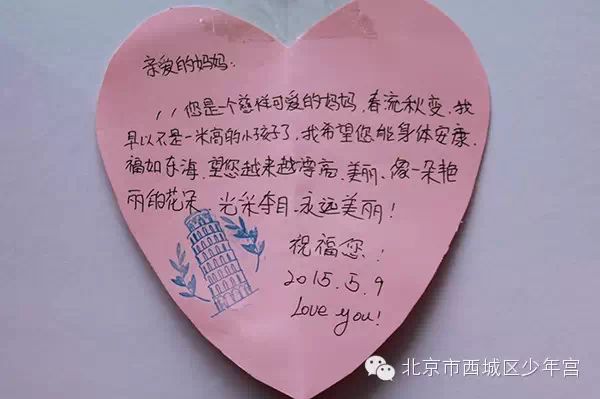 亲爱的妈妈：
,,您是一个慈祥可爱的妈妈，春流秋变，我
早以不是一米高的小孩子了，我希望您能身体安康，
福如东海，望您越来越尊高、美丽、像一朵艳
丽的花朵 光采夺目、永远美丽！
祝福您！
2015.5.9
Love you!
北京市西城区少年宫